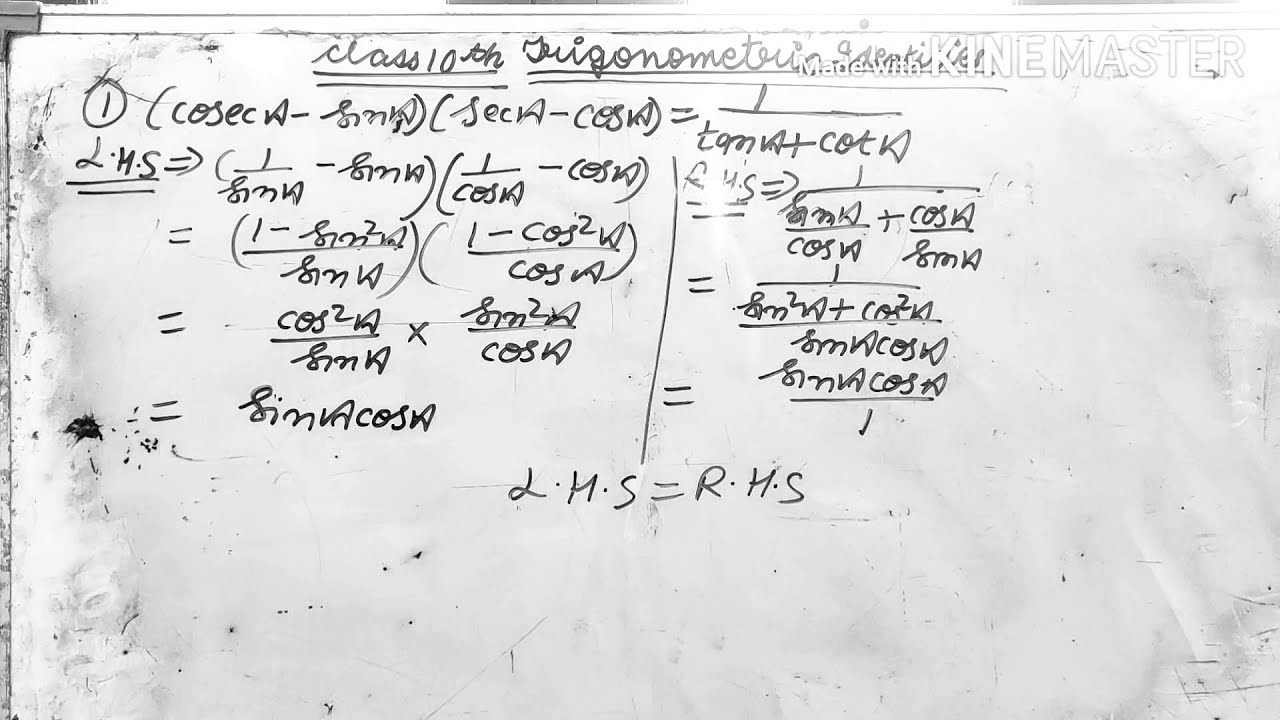 Class 10th Trigonometric Identities
Made with KINEMASTER
① (cosecA - sinA)(secA - cosA) = 1/(tanA + cotA)
L.H.S ⇒ (1/sinA - sinA)(1/cosA - cosA)
= ((1 - sin²A)/sinA)((1 - cos²A)/cosA)
= cos²A/sinA × sin²A/cosA
= sinAcosA
R.H.S ⇒ 1/(sinA/cosA + cosA/sinA)
= 1/((sin²A + cos²A)/sinAcosA)
= sinAcosA/1
L.H.S = R.H.S